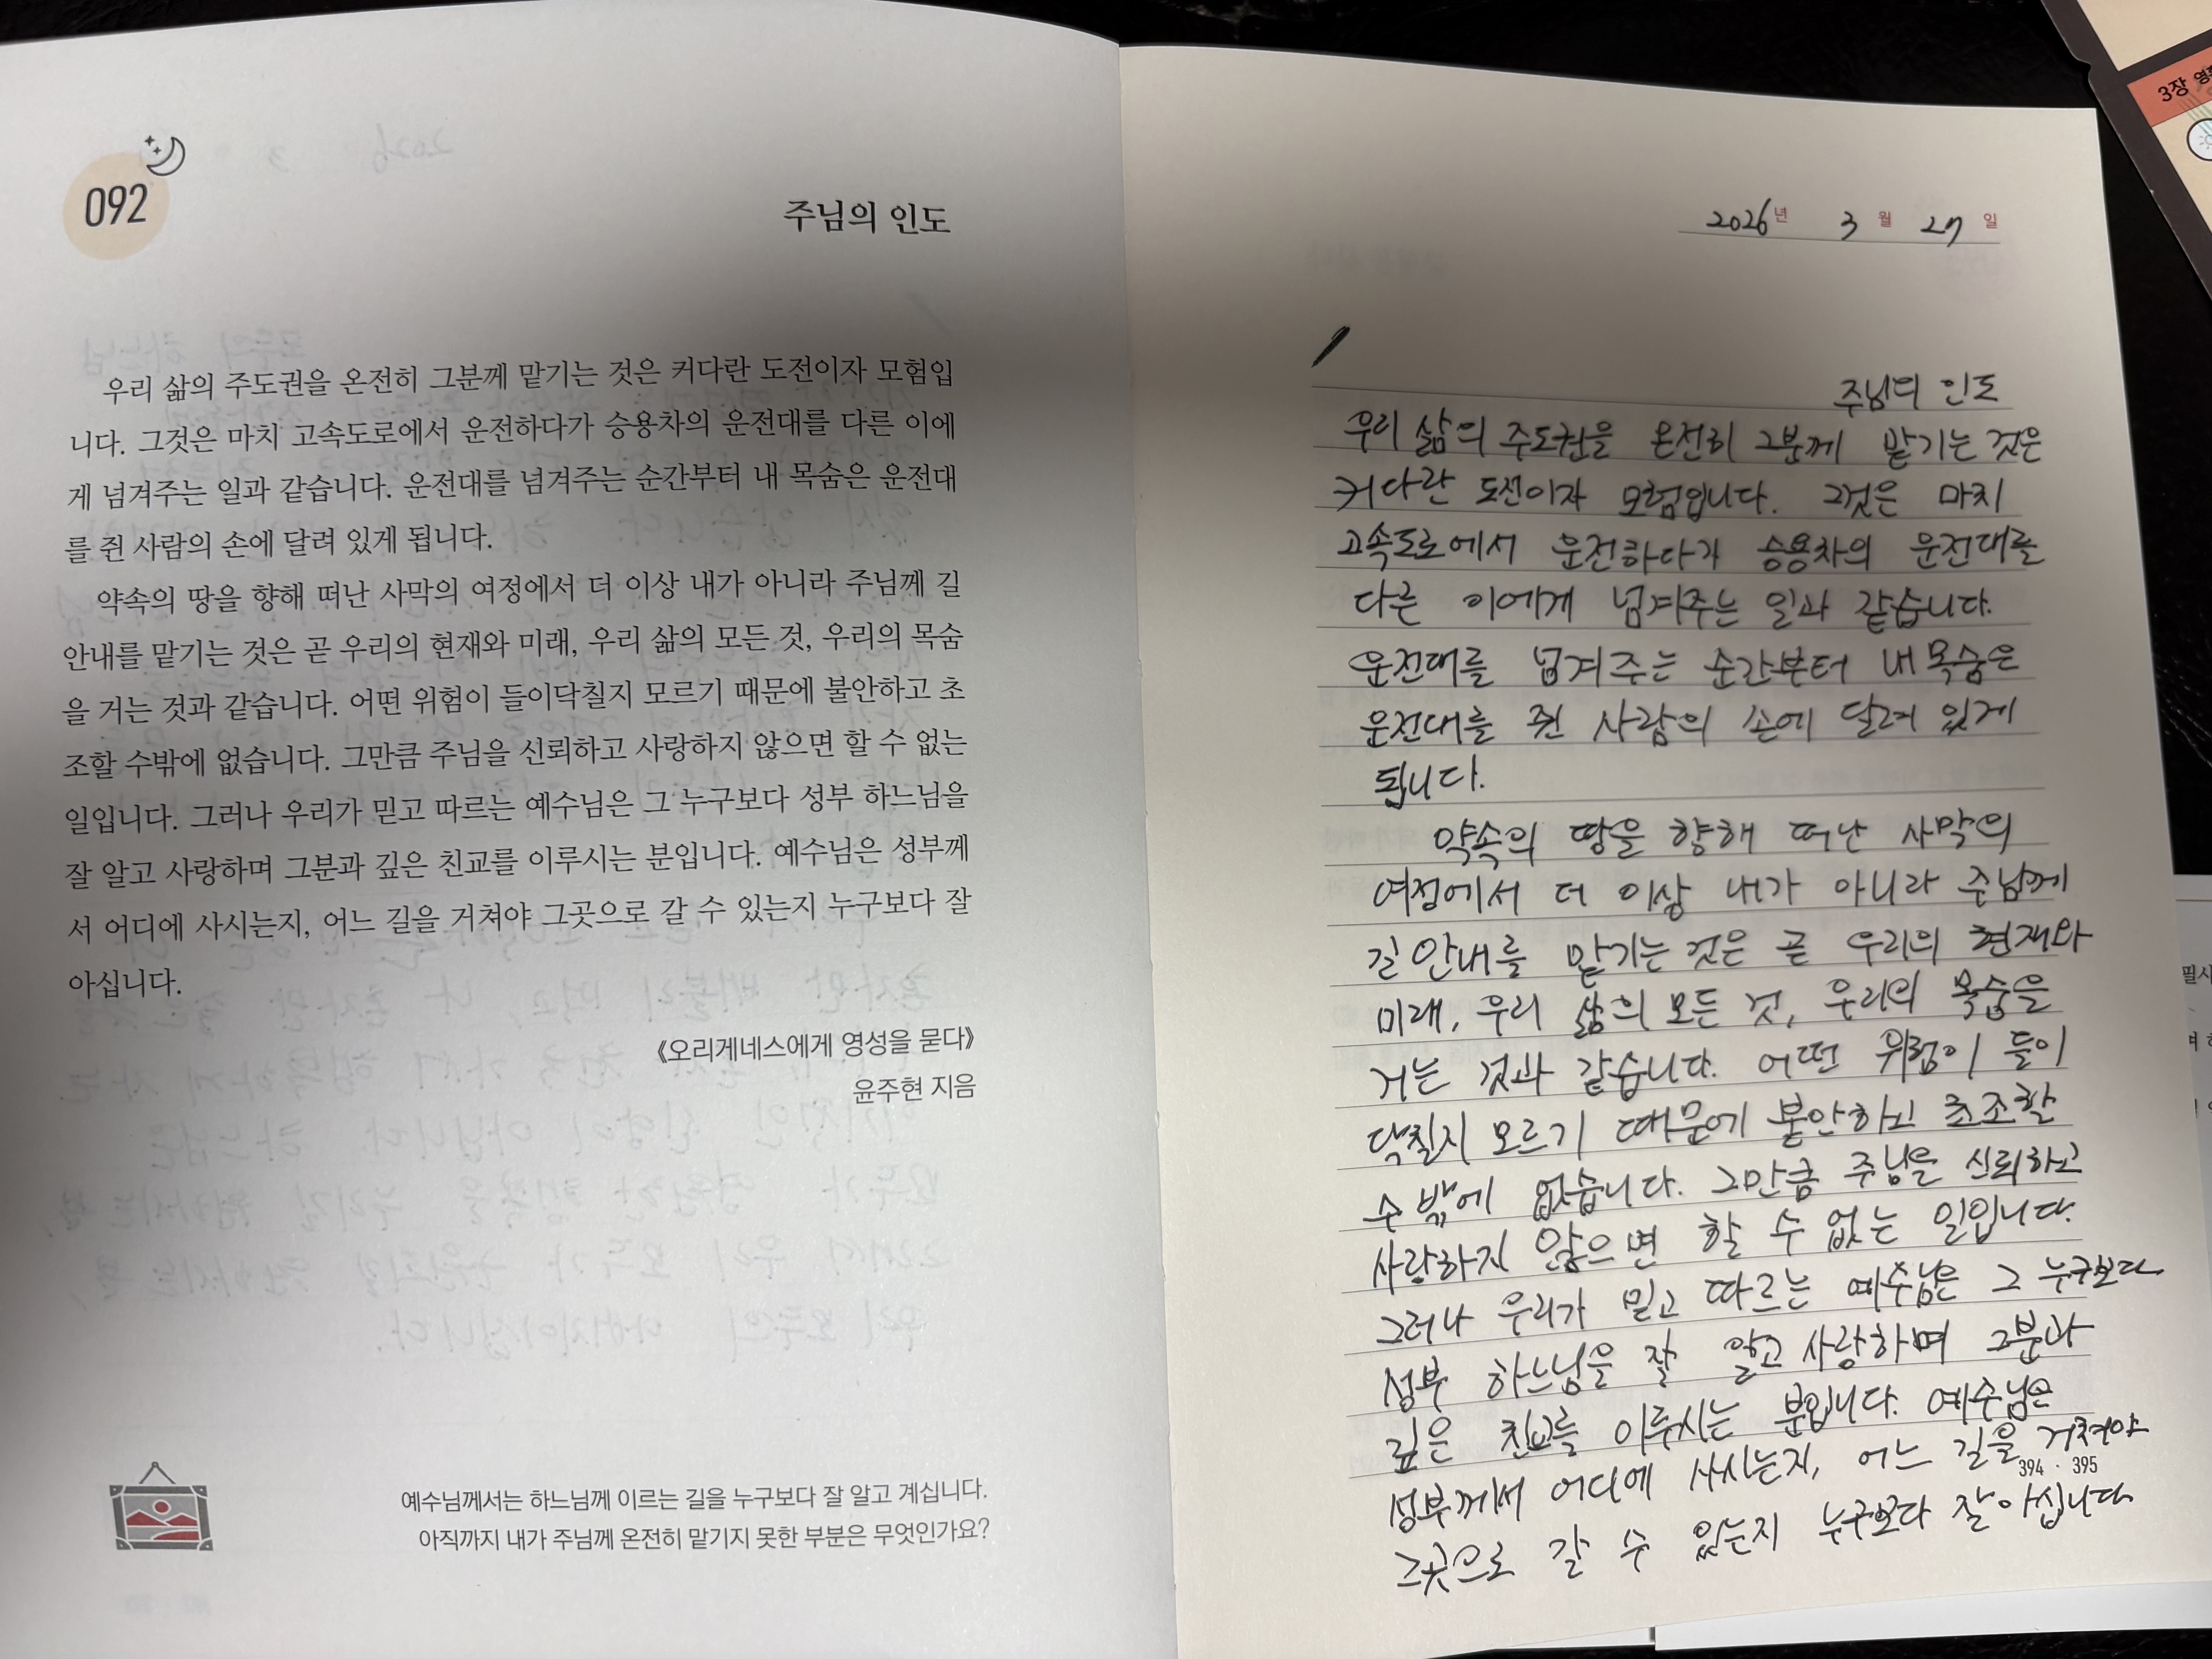 092
주님의 인도
우리 삶의 주도권을 온전히 그분께 맡기는 것은 커다란 도전이자 모험입
니다. 그것은 마치 고속도로에서 운전하다가 승용차의 운전대를 다른 이에
게 넘겨주는 일과 같습니다. 운전대를 넘겨주는 순간부터 내 목숨은 운전대
를 쥔 사람의 손에 달려 있게 됩니다.
약속의 땅을 향해 떠난 사막의 여정에서 더 이상 내가 아니라 주님께 길
안내를 맡기는 것은 곧 우리의 현재와 미래, 우리 삶의 모든 것, 우리의 목숨
을 거는 것과 같습니다. 어떤 위험이 들이닥칠지 모르기 때문에 불안하고 초
조할 수밖에 없습니다. 그만큼 주님을 신뢰하고 사랑하지 않으면 할 수 없는
일입니다. 그러나 우리가 믿고 따르는 예수님은 그 누구보다 성부 하느님을
잘 알고 사랑하며 그분과 깊은 친교를 이루시는 분입니다. 예수님은 성부께
서 어디에 사시는지, 어느 길을 거쳐야 그곳으로 갈 수 있는지 누구보다 잘
아십니다.
《오리게네스에게 영성을 묻다》
윤주현 지음
예수님께서는 하느님께 이르는 길을 누구보다 잘 알고 계십니다.
아직까지 내가 주님께 온전히 맡기지 못한 부분은 무엇인가요?
2026년 3월 27일
주님의 인도
우리 삶의 주도권을 온전히 그분께 맡기는 것은
커다란 도전이자 모험입니다. 그것은 마치
고속도로에서 운전하다가 승용차의 운전대를
다른 이에게 넘겨주는 일과 같습니다.
운전대를 넘겨주는 순간부터 내 목숨은
운전대를 쥔 사람의 손에 달려 있게
됩니다.
약속의 땅을 향해 떠난 사막의
여정에서 더 이상 내가 아니라 주님께
길 안내를 맡기는 것은 곧 우리의 현재와
미래, 우리 삶의 모든 것, 우리의 목숨을
거는 것과 같습니다. 어떤 위험이 들이
닥칠지 모르기 때문에 불안하고 초조할
수 밖에 없습니다. 그만큼 주님을 신뢰하고
사랑하지 않으면 할 수 없는 일입니다.
그러나 우리가 믿고 따르는 예수님은 그 누구보다
성부 하느님을 잘 알고 사랑하며 그분과
깊은 친교를 이루시는 분입니다. 예수님은
성부께서 어디에 사시는지, 어느 길을 거쳐야
그곳으로 갈 수 있는지 누구보다 잘 아십니다
394 · 395
3장
필사